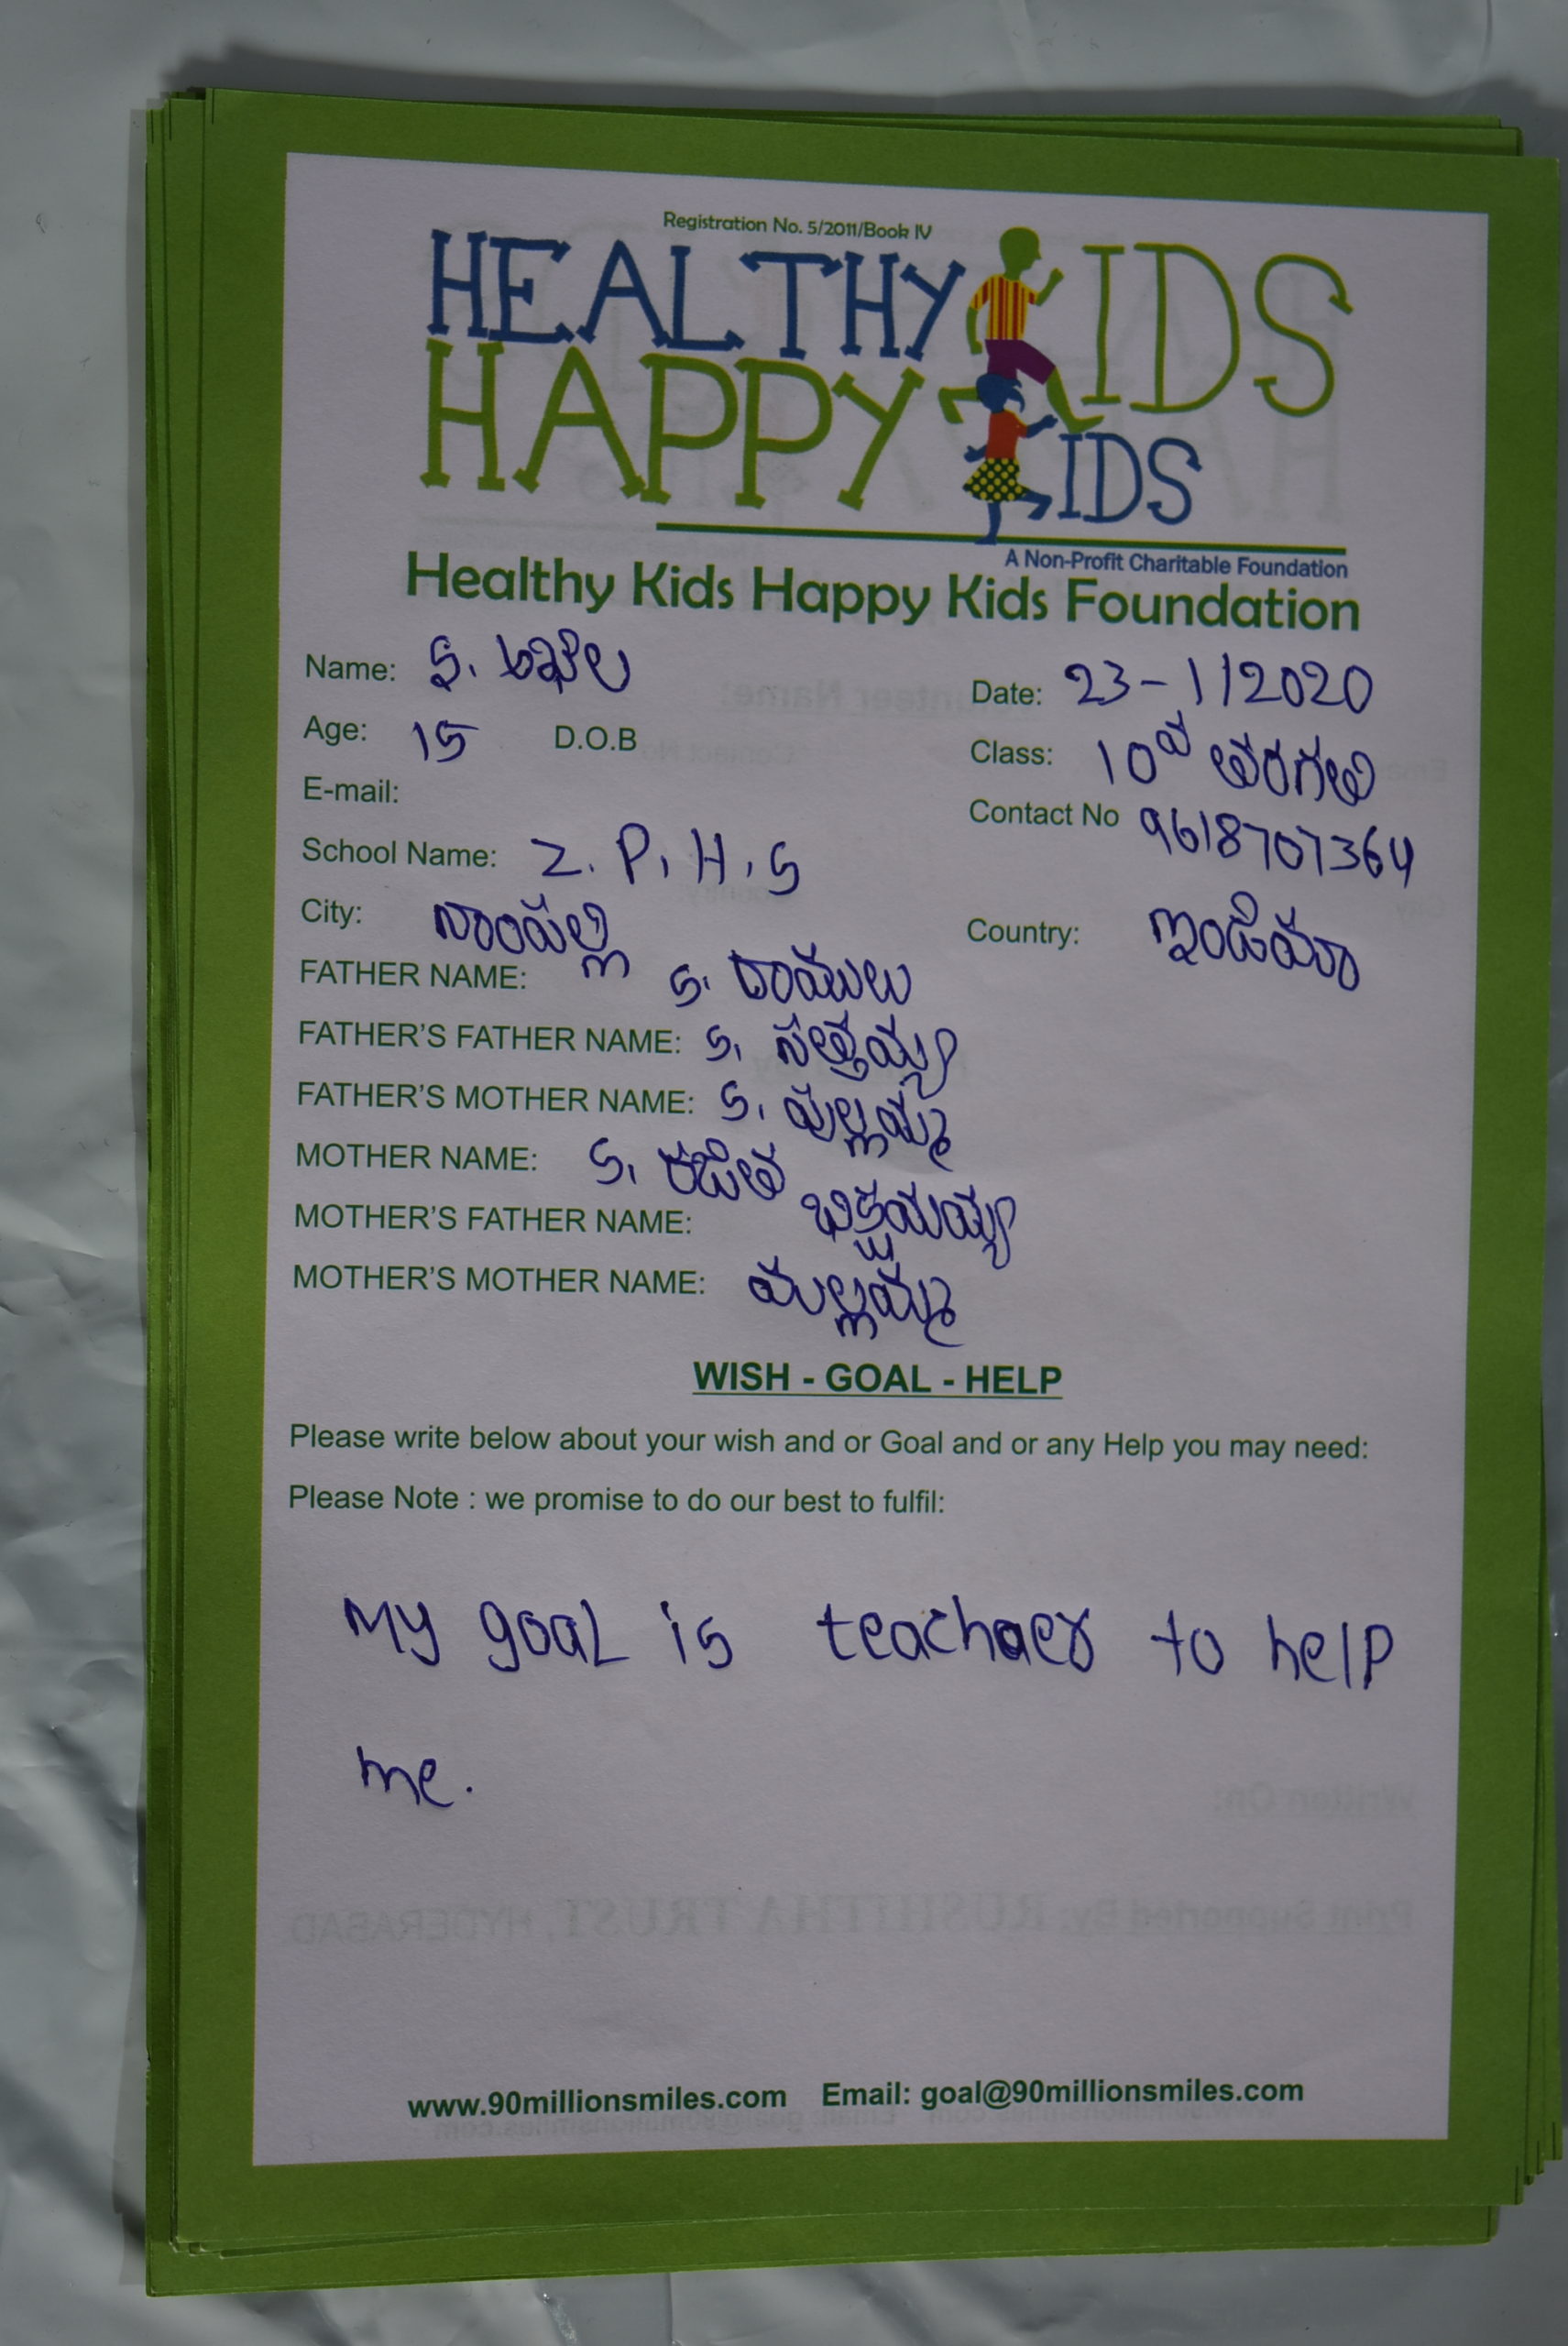 Registration No. 5/2011/Book IV
HEALTHY KIDS
HAPPY KIDS
A Non-Profit Charitable Foundation
Healthy Kids Happy Kids Foundation
Name: S. అఖిల Date: 23-1/2020
Age: 15 D.O.B Class: 10వ తరగతి
E-mail: Contact No 9618707364
School Name: Z.P.H.S
City: నాంపల్లి Country: ఇండియా
FATHER NAME: S. రాములు
FATHER'S FATHER NAME: S. సత్తయ్య
FATHER'S MOTHER NAME: S. మల్లమ్మ
MOTHER NAME: S. రజిత
MOTHER'S FATHER NAME: భిక్షమయ్య
MOTHER'S MOTHER NAME: మల్లమ్మ
WISH - GOAL - HELP
Please write below about your wish and or Goal and or any Help you may need:
Please Note : we promise to do our best to fulfil:
My goal is teachaer to help
me.
www.90millionsmiles.com Email: goal@90millionsmiles.com